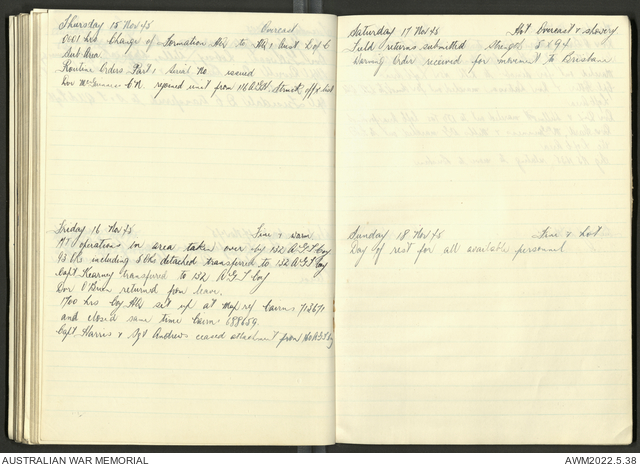 Thursday 15 Nov 45 Overcast
0001 hrs Change of Formation HQ to HQ 1 Aust L of C
Sub Area
Routine Orders Part 1 Serial No issued
Dvr McGuinness C.R. rejoined unit from 116 A.G.H. Struck off X list
Friday 16 Nov 45 Fine & warm
MT operations in area taken over by 132 A.G.T Coy
93 ORs including 5 ORs detached transferred to 132 A.G.T Coy
Capt Kearney transferred to 132 A.G.T Coy
Dvr O'Brien returned from leave.
1700 hrs Coy HQ set up at Map ref Cairns 712671
and closed same time Cairns 688659.
Capt Harris & Sgt Andrews ceased attachment from A.G.T Coy
Saturday 17 Nov 45 Hot Overcast & showery
Field returns submitted Strength 5 & 94
Warning Order received for movement to Brisbane
Sunday 18 Nov 45 Fine & Hot
Day of rest for all available personnel
AUSTRALIAN WAR MEMORIAL AWM2022.5.38